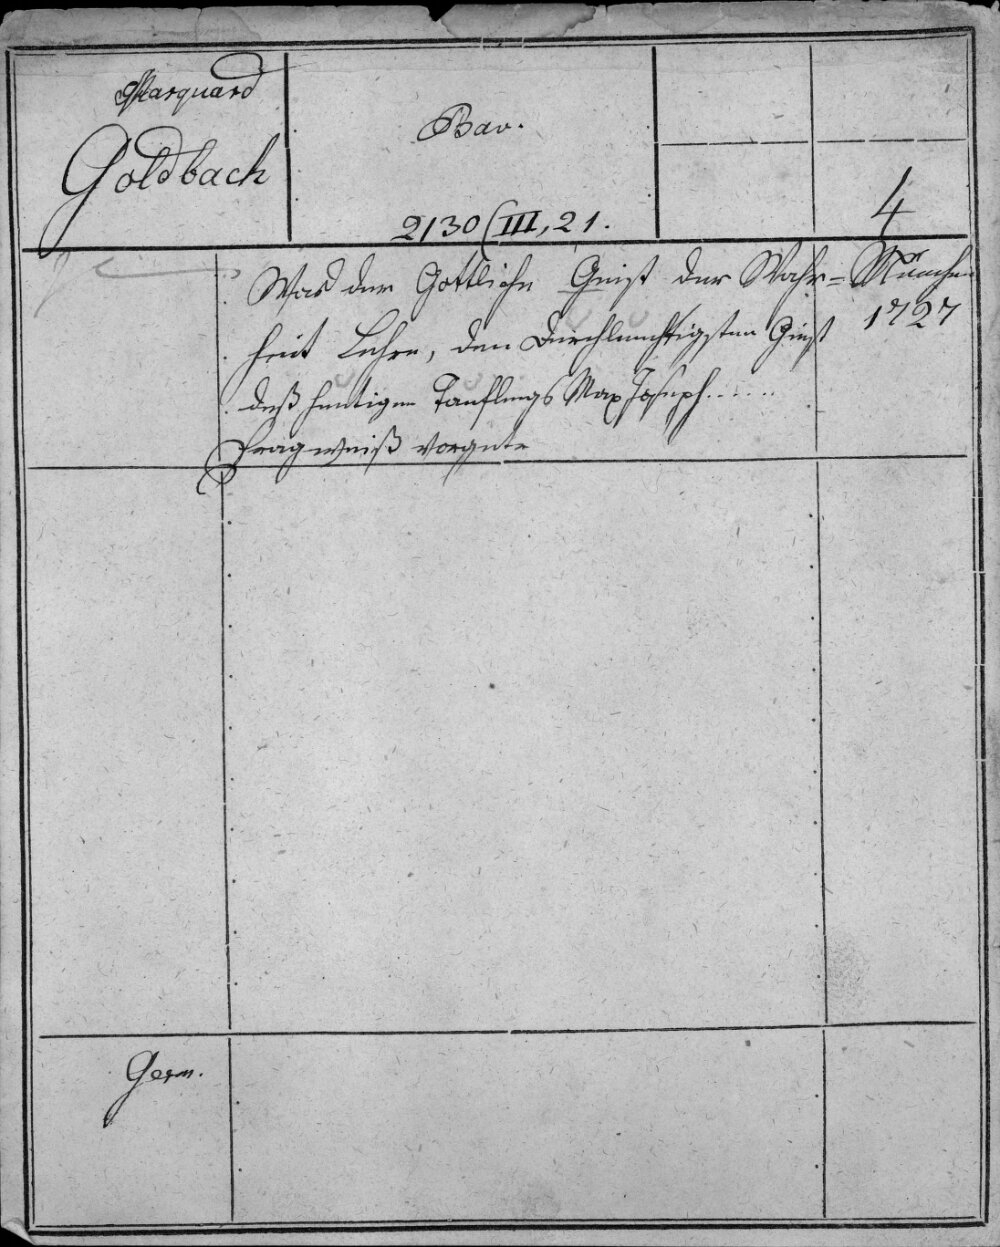 Marquard
Goldbach
Bav.
2130 (III, 21.
4
Was der Göttliche Geist der Wahr=
heit Lehre, den Durchleuchtigsten Geist
deß heutigen Täuflings Max Joseph......
München
1727
Germ.